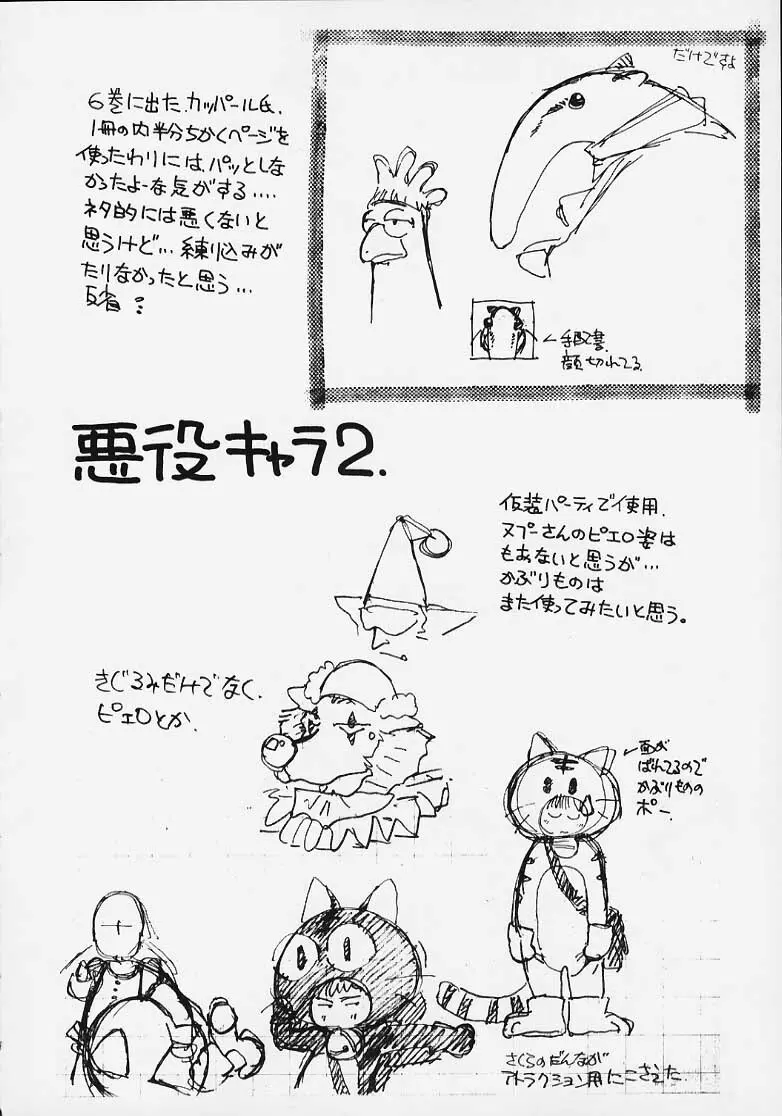 だけですよ
6巻に出た、カッパール氏、
1冊の内半分ちかくページを
使ったわりには、パッとしな
かったよーな気がする....
ネタ的には悪くないと
思うけど…練り込みが
たりなかったと思う…
反省…
←手配書
顔切れてる
悪役キャラ2.
仮装パーティで使用.
ヌプーさんのピエロ姿は
もおないと思うが…
かぶりものは
また使ってみたいと思う。
きぐるみだけでなく、
ピエロとか、
←面が
ばれてるので
かぶりものの
ポー
さくらのだんなが
アトラクション用にこさえた